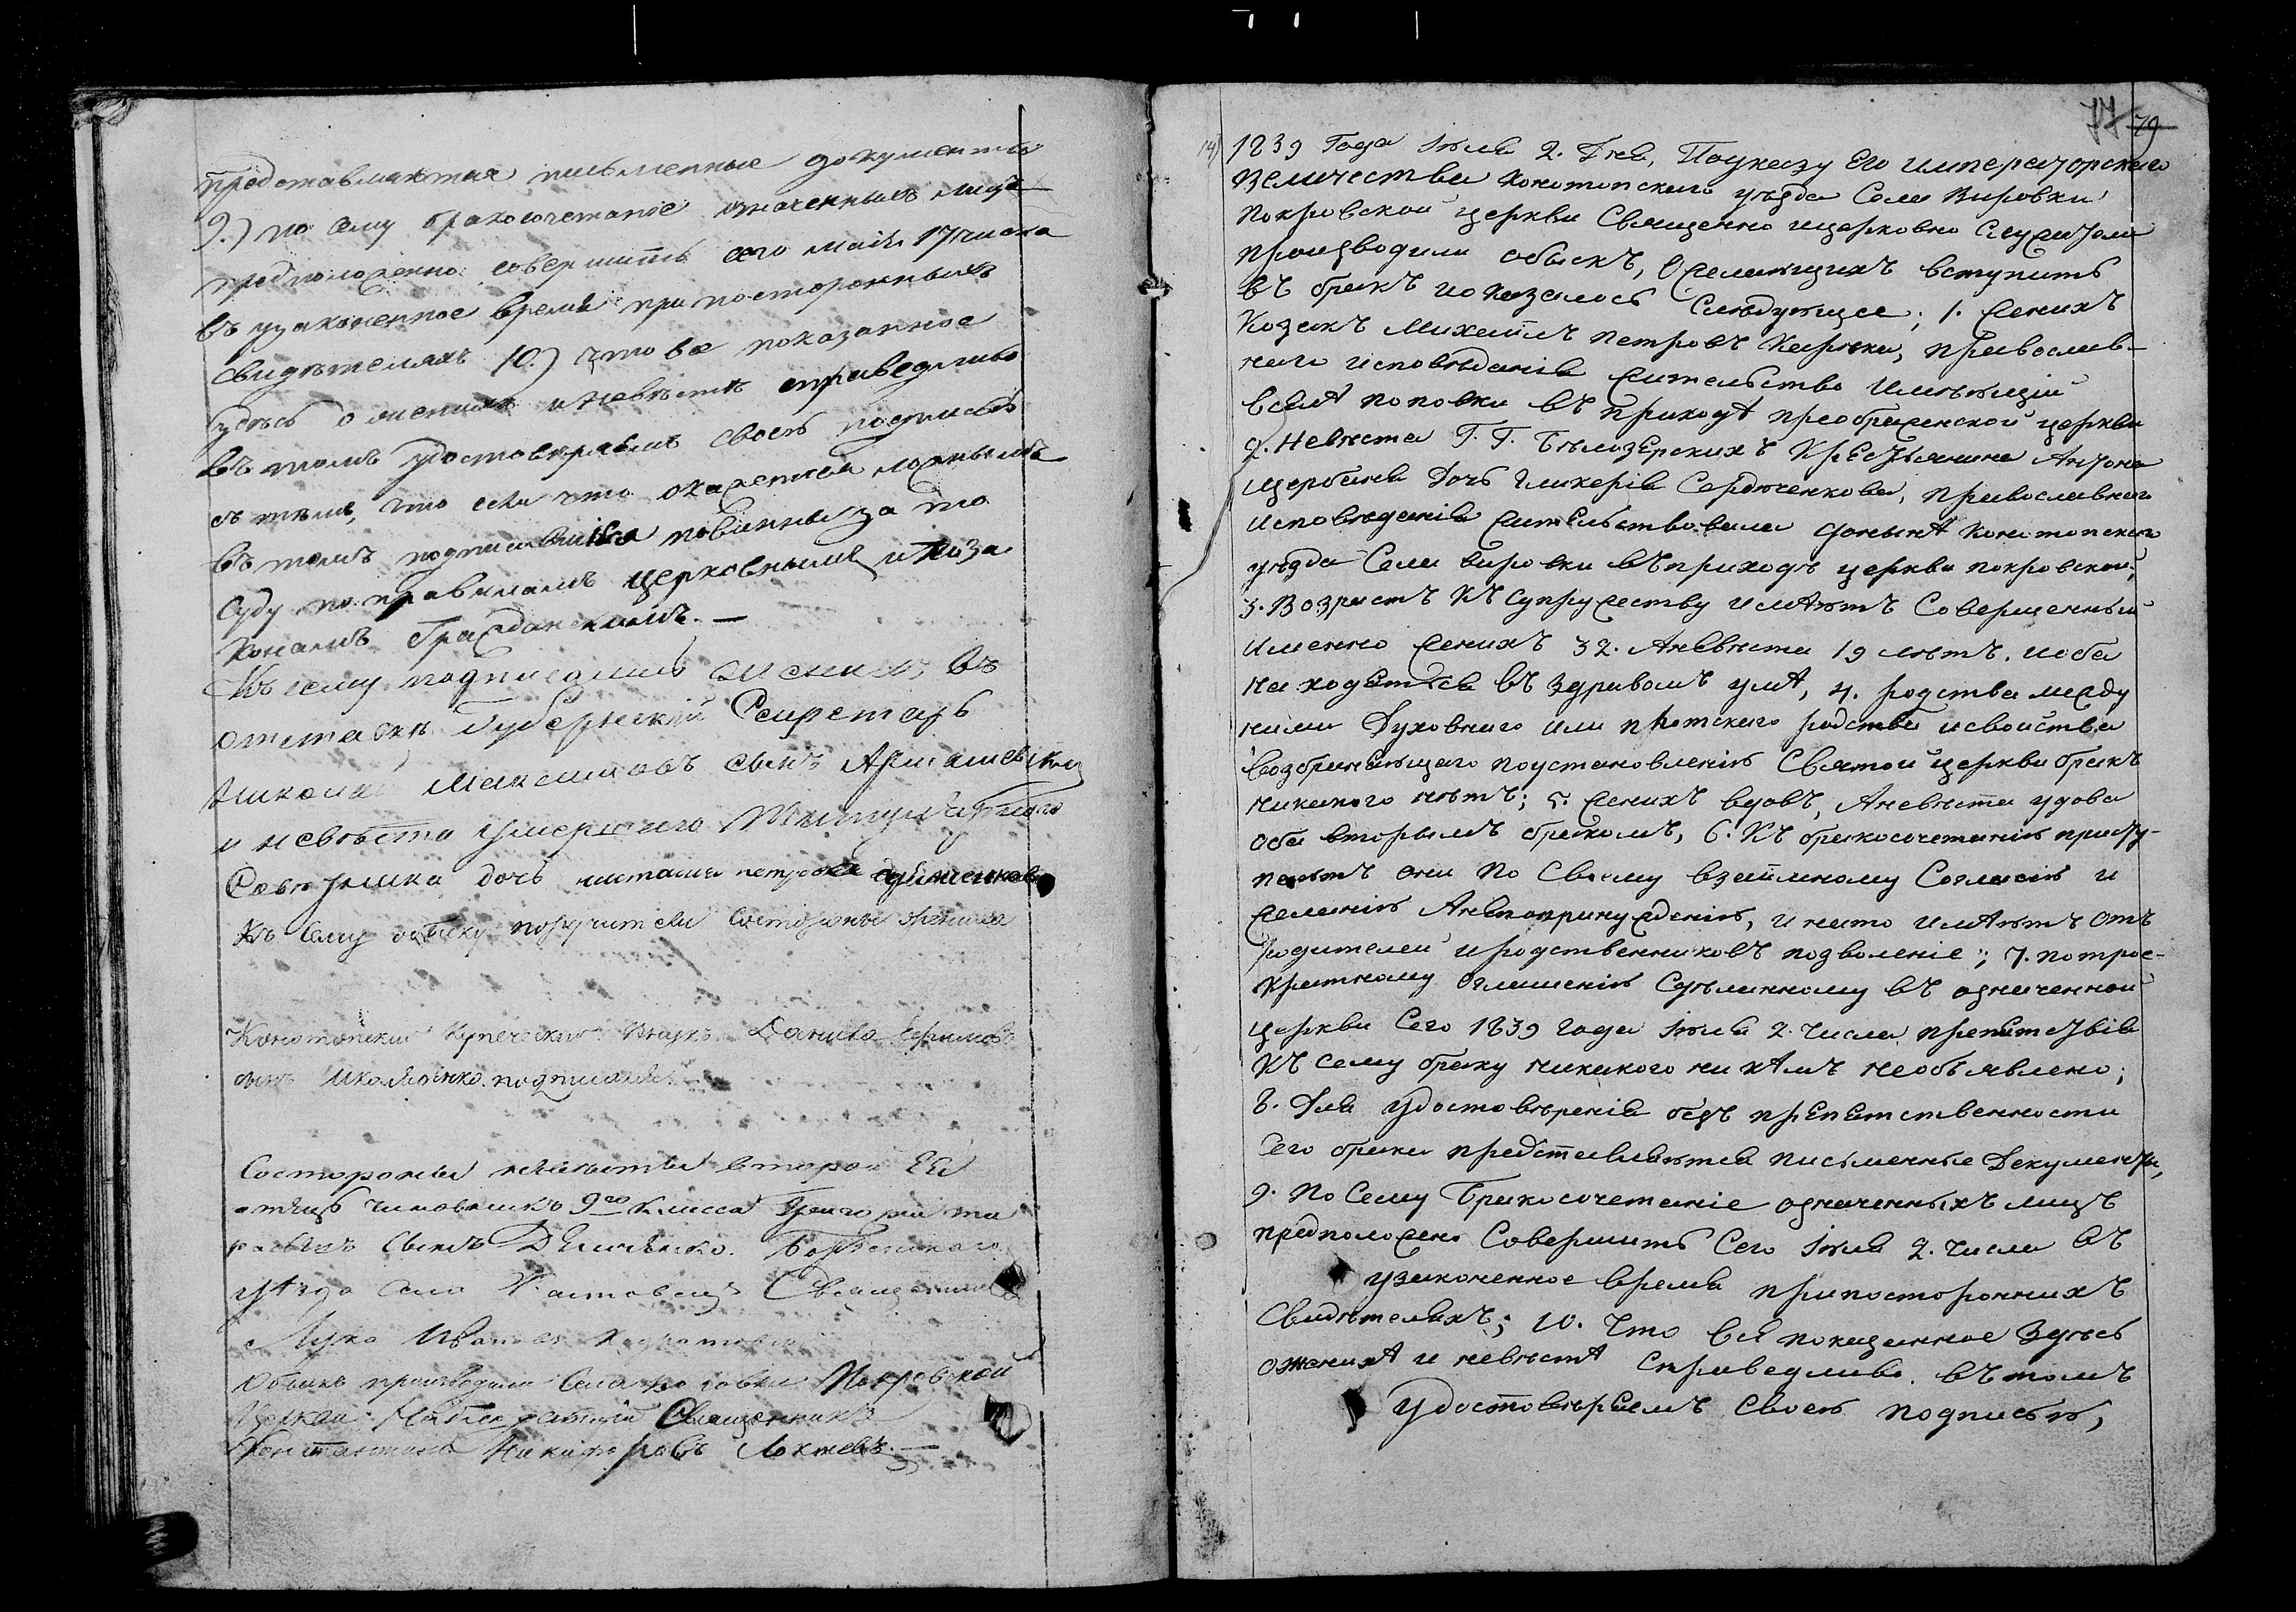 представляются письменные документы
9.) по сему бракосочетаніе означенныхъ лицъ
предположенно совершить сего маія 17 числа
въ узаконенное время при постороннихъ
свидѣтеляхъ 10.) что все показанное
здѣсь о женихѣ и невѣстѣ справедливо
въ томъ удостовѣряемъ своею подписью
съ тѣмъ, что если что окажется ложнымъ
въ томъ подписавшіеся повинны за то
суду по правиламъ церковнымъ и по за
конамъ Гражданскимъ. —
Къ сему подписались женихъ, въ
отставкѣ Губернскій Секретарь
Николай Максимовъ сынъ
и невѣста умершаго Титулярнаго
Совѣтника дочь Петрова
Къ сему обыску поручители состороны жениха
Конотопскій Купеческій внукъ Данило Ефимовъ
сынъ подписался
Состороны невѣсты второй Ея
отецъ чиновникъ 9го класса Григорій
сынъ
уѣзда села Священникъ
Лука Ивановъ
Обыскъ производили села Покровской
Церкви Священникъ
Константинъ Никифоровъ Локтевъ. —
77 79
14) 1839 Года Іюля 2. Дня, По указу Его Императорскаго
Величества Конотопскаго уѣзда Села Вировки
Покровской церкви Священно ицерковно Служители
производили обыскъ, О желающихъ вступить
въ бракъ и оказалось Слѣдующее; 1. Женихъ
Козакъ Михаилъ Петровъ православ-
наго исповѣданія жительство Имѣющій
в селѣ Поповки въ приходѣ преображенской церкви
2. Невѣста Г. Г. Бѣлозерскихъ Крестьянина Антона
Щербины Дочь Гликерія Сердюченкова, православнаго
исповѣданія жительствовала донынѣ Конотопскаго
уѣзда Села вировки въ приходѣ церкви покровской;
3. Возрастъ Къ Супружеству имѣютъ Совершенный
именно женихъ 32. Аневѣста 19 лѣтъ. иоба
находятся въ здравомъ умѣ, 4. родства между
ними Духовнаго или плотскаго родства исвойства
возбраняющаго поустановленію Святой церкви бракъ
никакого нѣтъ; 5. Женихъ вдовъ, Аневѣста удова
оба вторымъ бракомъ, 6. Къ бракосочетанію присту-
паютъ они по Своему взаимному Согласію и
желанію Анепопринужденію, и нато имѣютъ отъ
родителей и родственниковъ позволеніе; 7. потрое-
кратному Оглашенію Сдѣланному въ означенной
церкви Сего 1839 года Іюля 2 числа препятствія
Къ сему браку никакого ни кѣмъ необъявлено;
8. Для удостовѣренія безъ препятственности
Сего брака представляются письменные Документы,
9. По Сему Бракосочетаніе означенныхъ лицъ
предположено Совершить Сего Іюля 2. числа въ
узаконенное время припостороннихъ
Свидѣтеляхъ; 10. Что всѣ показанное Здѣсь
ожениxѣ и невѣстѣ Справедливо. въ томъ
удостовѣряемъ своею подписью,